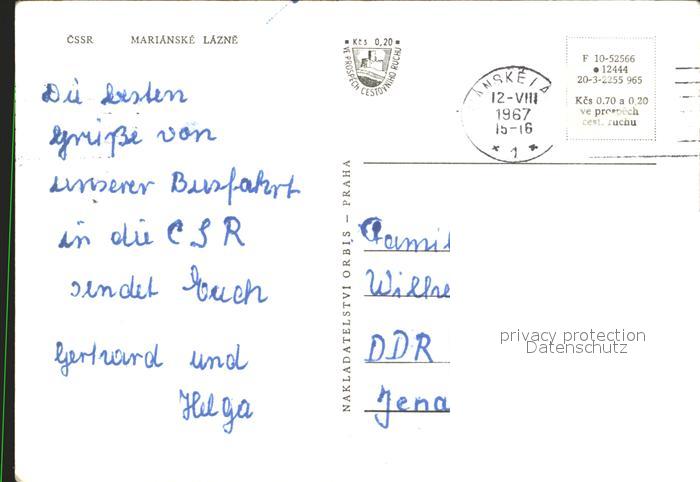 ČSSR MARIÁNSKÉ LÁZNĚ
Kčs 0,20
VE PROSPĚCH CESTOVNÍHO RUCHU
Die besten
Grüße von
unserer Busfahrt
in die ČSR
sendet Euch
Gerhard und
Helga
NAKLADATELSTVÍ ORBIS – PRAHA
12-VIII
1967
15-16
* 1 *
F 10-52566
● 12444
20-3-2255 965
Kčs 0.70 a 0,20
ve prospěch
cest. ruchu
Famil
Wilhe
DDR
Jena
privacy protection
Datenschutz